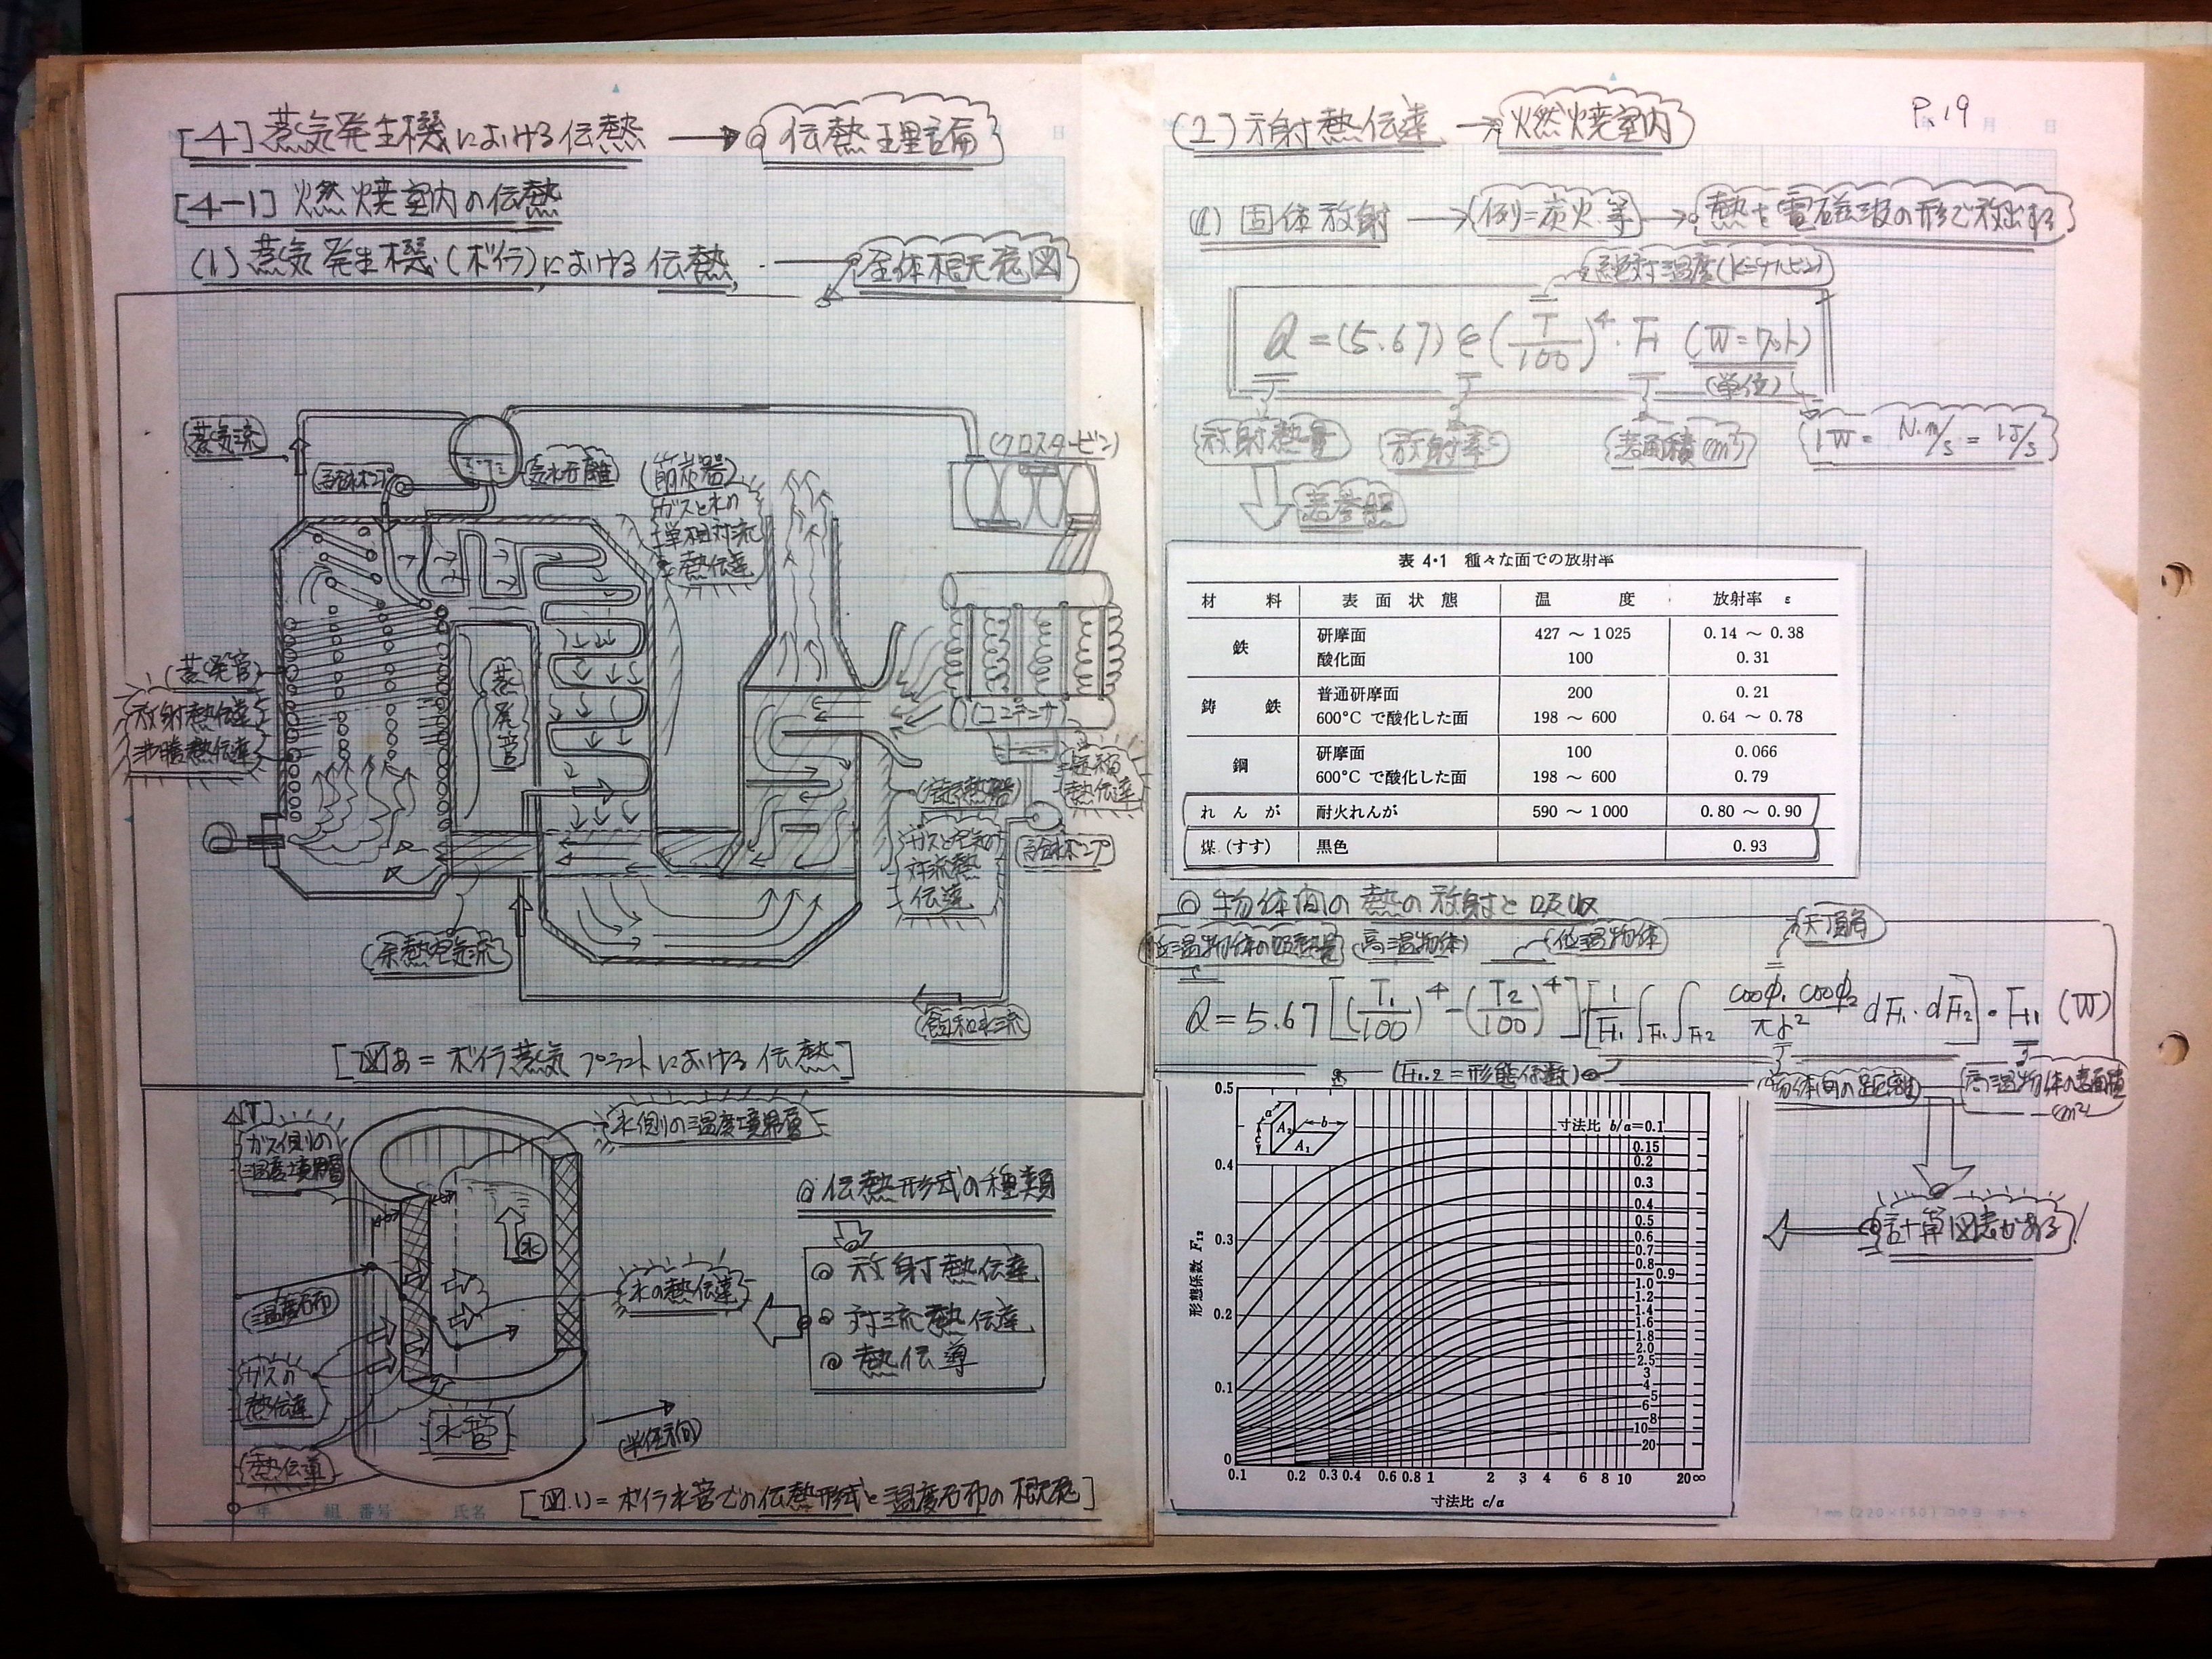 [4] 蒸気発生機における伝熱 → ◎ 伝熱理論
[4-1] 燃焼室内の伝熱
(1) 蒸気発生機(ボイラ)における伝熱 → 全体概念図
蒸気流
気水分離
(節炭器)
ガスと水の
単相対流
熱伝達
(クロスタービン)
(蒸発管)
放射熱伝達
沸騰熱伝達
蒸発管
(コンデンサ)
熱伝達
ガスと空気の
対流熱
伝達
給水ポンプ
余熱空気流
飽和水流
[図あ = ボイラ蒸気プラントにおける伝熱]
[T]
ガス側の
温度境界層
水側の温度境界層
水
温度分布
水の熱伝達
ガスの
熱伝達
熱伝導
水管
(半径方向)
◎ 伝熱形式の種類
◎ 放射熱伝達
◎ 対流熱伝達
◎ 熱伝導
[図.い = ボイラ水管での伝熱形式と温度分布の概念]
年 組 番号 氏名
P.19
月 日
(2) 放射熱伝達 → 燃焼室内
(a) 固体放射 → 例=炭火等 → 熱を電磁波の形で放出する
絶対温度(K=ケルビン)
Q = (5.67) ε (T/100)^4 · F (W=ワット)
(単位)
放射熱量
放射率
表面積(m²)
1W = N·m/s = 1J/s
表 4·1 種々な面での放射率
材 料 表 面 状 態 温 度 放射率 ε
鉄 研摩面 427 ～ 1 025 0.14 ～ 0.38
酸化面 100 0.31
鋳 鉄 普通研摩面 200 0.21
600°C で酸化した面 198 ～ 600 0.64 ～ 0.78
鋼 研摩面 100 0.066
600°C で酸化した面 198 ～ 600 0.79
れ ん が 耐火れんが 590 ～ 1 000 0.80 ～ 0.90
煤 (すす) 黒色 0.93
◎ 物体間の熱の放射と吸収
低温物体の吸熱量 (高温物体) 低温物体 天頂角
Q = 5.67 [(T₁/100)^4 - (T₂/100)^4] [1/F₁ ∫F₁ ∫F₂ cosφ₁ cosφ₂/πr² dF₁·dF₂] · F₁ (W)
(F1.2 = 形態係数)
物体間の距離
高温物体の表面積
m²
計算図表がある
寸法比 b/a=0.1
0.15
0.2
0.3
0.4
0.5
0.6
0.7
0.8
0.9
1.0
1.2
1.4
1.6
1.8
2.0
2.5
3
4
5
6
8
10
20
a
b
c
A₂
A₁
0.5
0.4
0.3
0.2
0.1
0
形態係数 F₁₂
0.1 0.2 0.3 0.4 0.6 0.8 1 2 3 4 6 8 10 20 ∞
寸法比 c/a